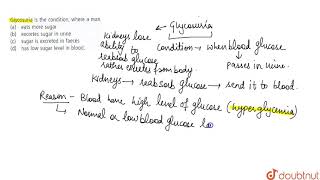 Glycosuria is the condition, where a man
(a) eats more sugar
(b) excretes sugar in urine
(c) sugar is excreted in faeces
(d) has low sugar level in blood.
Glycosuria
kidneys lose
ability to
reabsorb glucose
rather excretes from body
condition → when blood glucose
passes in urine.
Kidneys → reabsorb glucose → send it to blood.
Reason - Blood have high level of glucose (hyperglycemia)
Normal or low blood glucose le
doubtnut